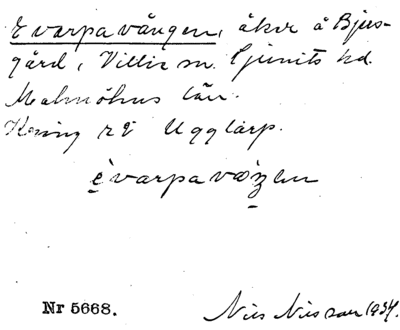 Evarpavången, åker å Bjers-
gård, Villie sn. Ljunits hd.
Malmöhus län.
Ugglarp.
èvarpavœŋen
Nr 5668.
Nils Nilsson 1934.